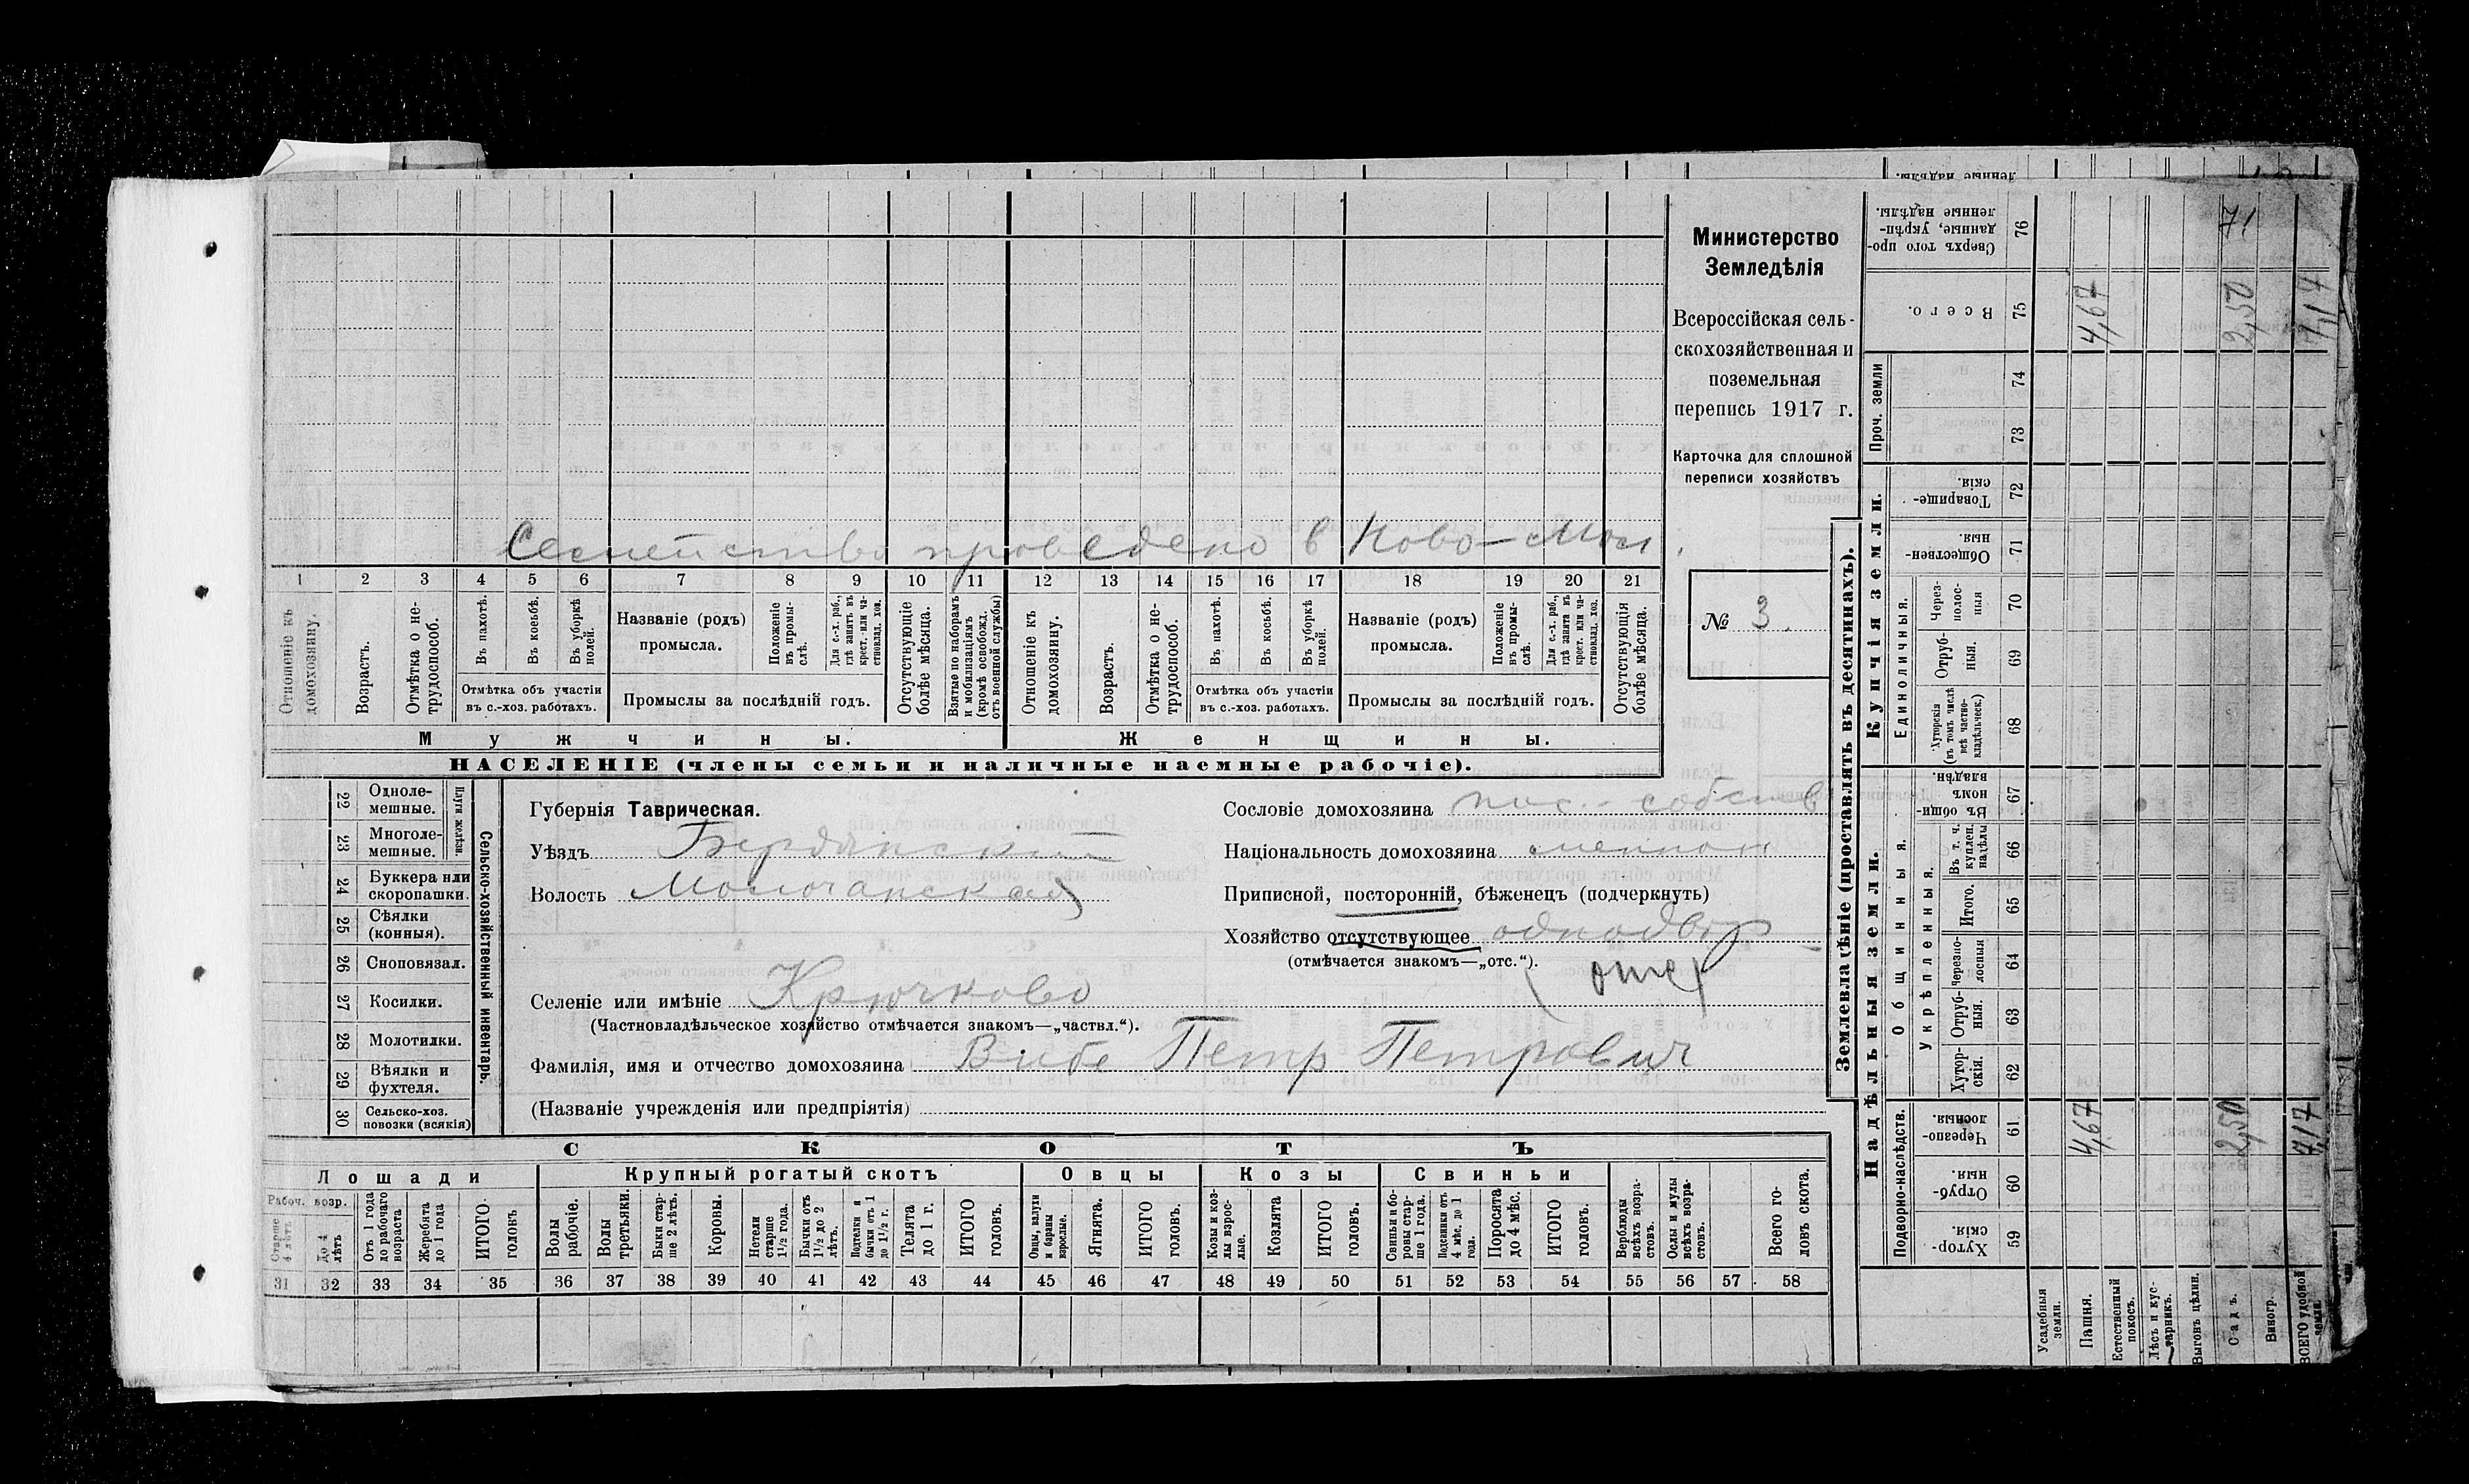 Семейство проведено в Ново-Мол.
1 2 3 4 5 6 7 8 9 10 11 12 13 14 15 16 17 18 19 20 21
Отношеніе къ домохозяину.
Возрастъ.
Отмѣтка о не-трудоспособ.
Въ пахотѣ.
Въ косьбѣ.
Въ уборкѣ полей.
Отмѣтка объ участіи въ с.-хоз. работахъ.
Названіе (родъ) промысла.
Положеніе въ промы-слѣ.
Для с.-х. раб., гдѣ занятъ въ крест. или ча-стновлад. хоз.
Промыслы за послѣдній годъ.
Отсутствующіе болѣе мѣсяца.
Взятые по наборамъ и мобилизаціямъ (кромѣ освобожд. отъ военной службы)
Отношеніе къ домохозяину.
Возрастъ.
Отмѣтка о не-трудоспособ.
Въ пахотѣ.
Въ косьбѣ.
Въ уборкѣ полей.
Отмѣтка объ участіи въ с.-хоз. работахъ.
Названіе (родъ) промысла.
Положеніе въ промы-слѣ.
Для с.-х. раб., гдѣ занята въ крест. или ча-стновлад. хоз.
Промыслы за послѣдній годъ.
Отсутствующія болѣе мѣсяца.
Мужчины.
Женщины.
НАСЕЛЕНІЕ (члены семьи и наличные наемные рабочіе).
Министерство
Земледѣлія
Всероссійская сель-
скохозяйственная и
поземельная
перепись 1917 г.
Карточка для сплошной
переписи хозяйствъ
№ 3.
22 Одноле-мешные.
23 Многоле-мешные.
Плуги желѣзн.
24 Буккера или скоропашки.
25 Сѣялки (конныя).
26 Сноповязал.
27 Косилки.
28 Молотилки.
29 Вѣялки и фухтеля.
30 Сельско-хоз. повозки (всякія)
Сельско-хозяйственный инвентарь.
Губернія Таврическая.
Уѣздъ Бердянскій
Волость Молочанская
Селеніе или имѣніе Крючково
(Частновладѣльческое хозяйство отмѣчается знакомъ—„частвл.“).
Фамилія, имя и отчество домохозяина Вибе Петр Петрович
(Названіе учрежденія или предпріятія)
Сословіе домохозяина пос.-собств
Національность домохозяина меннон
Приписной, посторонній, бѣженецъ (подчеркнуть)
Хозяйство отсутствующее однодвор
(отмѣчается знакомъ—„отс.“).
СКОТЪ
Лошади
Крупный рогатый скотъ
Овцы
Козы
Свиньи
Рабоч. возр.
Старше 4 лѣтъ
До 4 лѣтъ
Отъ 1 года до рабочаго возраста
Жеребята до 1 года
ИТОГО головъ
Волы рабочіе.
Волы третьяки.
Быки стар-ше 2 лѣтъ.
Коровы.
Нетели старше 1½ года.
Бычки отъ 1½ до 2 лѣтъ.
Подтелки и бычки отъ 1 до 1½ г.
Телята до 1 г.
ИТОГО головъ.
Овцы, валухи и бараны взрослые.
Ягнята.
ИТОГО головъ.
Козы и коз-лы взрос-лые.
Козлята
ИТОГО головъ.
Свиньи и бо-ровы стар-ше 1 года.
Подсвинки отъ 4 мѣс. до 1 года.
Поросята до 4 мѣс.
ИТОГО головъ.
Верблюды всѣхъ возра-стовъ.
Ослы и мулы всѣхъ возра-стовъ.
Всего го-ловъ скота.
31 32 33 34 35 36 37 38 39 40 41 42 43 44 45 46 47 48 49 50 51 52 53 54 55 56 57 58
Землевладѣніе (проставлять въ десятинахъ).
Купчія земли.
Надѣльныя земли.
Сверхъ того про-данные, укрѣп-ленные надѣлы. 76
Всего. 75 4,67 2,50 7,17
Проч. земли 74 73
Товарище-скія. 72
Обществен-ныя. 71
Единоличныя.
Через-полос-ныя 70
Отруб-ныя. 69
Хуторскія (въ томъ числѣ всѣ частно-владѣльческ.) 68
Общинныя.
Въ общин-номъ владѣн. 67
Укрѣпленныя.
Въ т. ч. куплен. надѣлы 66
Итого. 65
Черезпо-лосныя 64
Отруб-ныя. 63
Хутор-скія. 62
Подворно-наслѣдств.
Черезпо-лосныя. 61 4,67 2,50 7,17
Отруб-ныя. 60
Хутор-скія. 59
Усадебныя земли.
Пашня.
Естественный покосъ.
Лѣсъ и кус-тарникъ.
Выгонъ цѣлин.
Садъ.
Виногр.
ВСЕГО удобной земли.